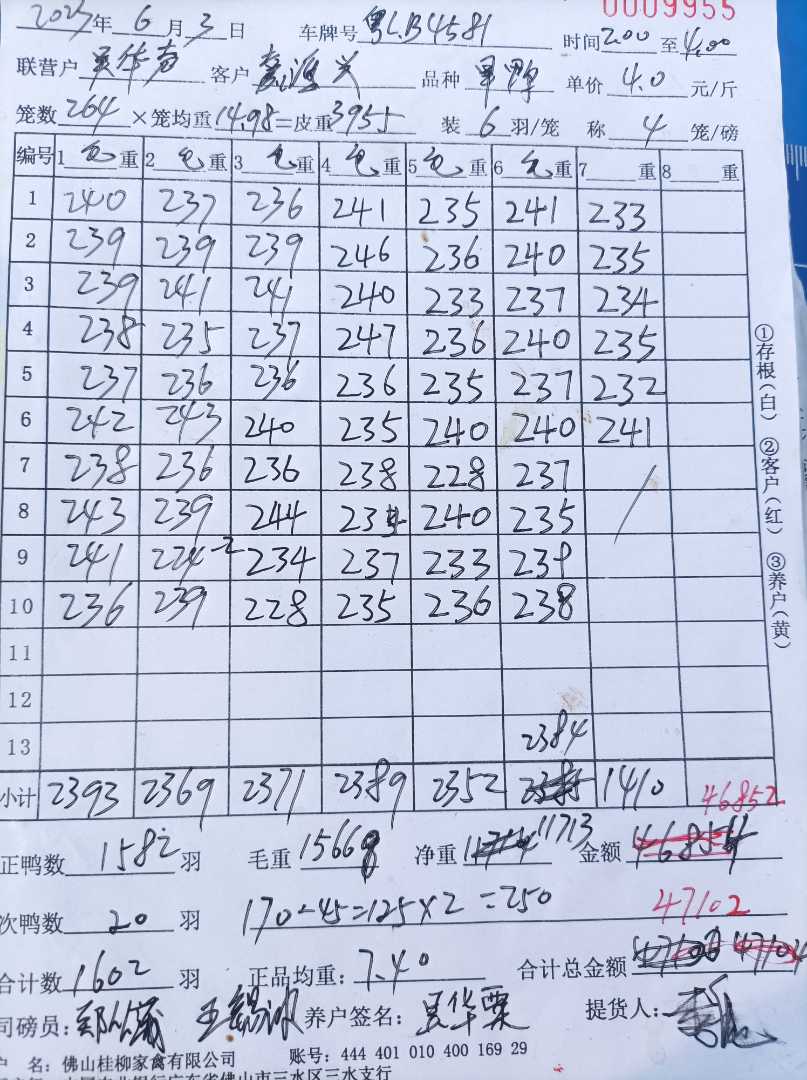 0009955
2025年 6 月 3 日 车牌号 粤LB4581 时间 2:00 至 4:00
联营户 吴华南 客户 品种 单价 4.0 元/斤
笼数 264 ×笼均重 14.98 =皮重 3955 装 6 羽/笼 称 4 笼/磅
编号 1 毛 重 2 毛 重 3 毛 重 4 毛 重 5 毛 重 6 毛 重 7 重 8 重
1 240 237 236 241 235 241 233
2 239 239 239 246 236 240 235
3 239 241 241 240 233 237 234
4 238 235 237 247 236 240 235
5 237 236 236 236 235 237 232
6 242 243 240 235 240 240 241
7 238 236 236 238 228 237 /
8 243 239 244 234 240 235
9 241 224-2 234 237 233 239
10 236 239 228 235 236 238
11
12
13 2384
小计 2393 2369 2371 2389 2352 1410 46852
正鸭数 1582 羽 毛重 15668 净重 11713 金额
次鸭数 20 羽 170-45=125×2=250 47102
合计数 1602 羽 正品均重: 7.40 合计总金额
司磅员: 养户签名: 吴华粟 提货人:
户 名: 佛山桂柳家禽有限公司 账号: 444 401 010 400 169 29
银行广东省佛山市三水区三水支行
①存根(白) ②客户(红) ③养户(黄)